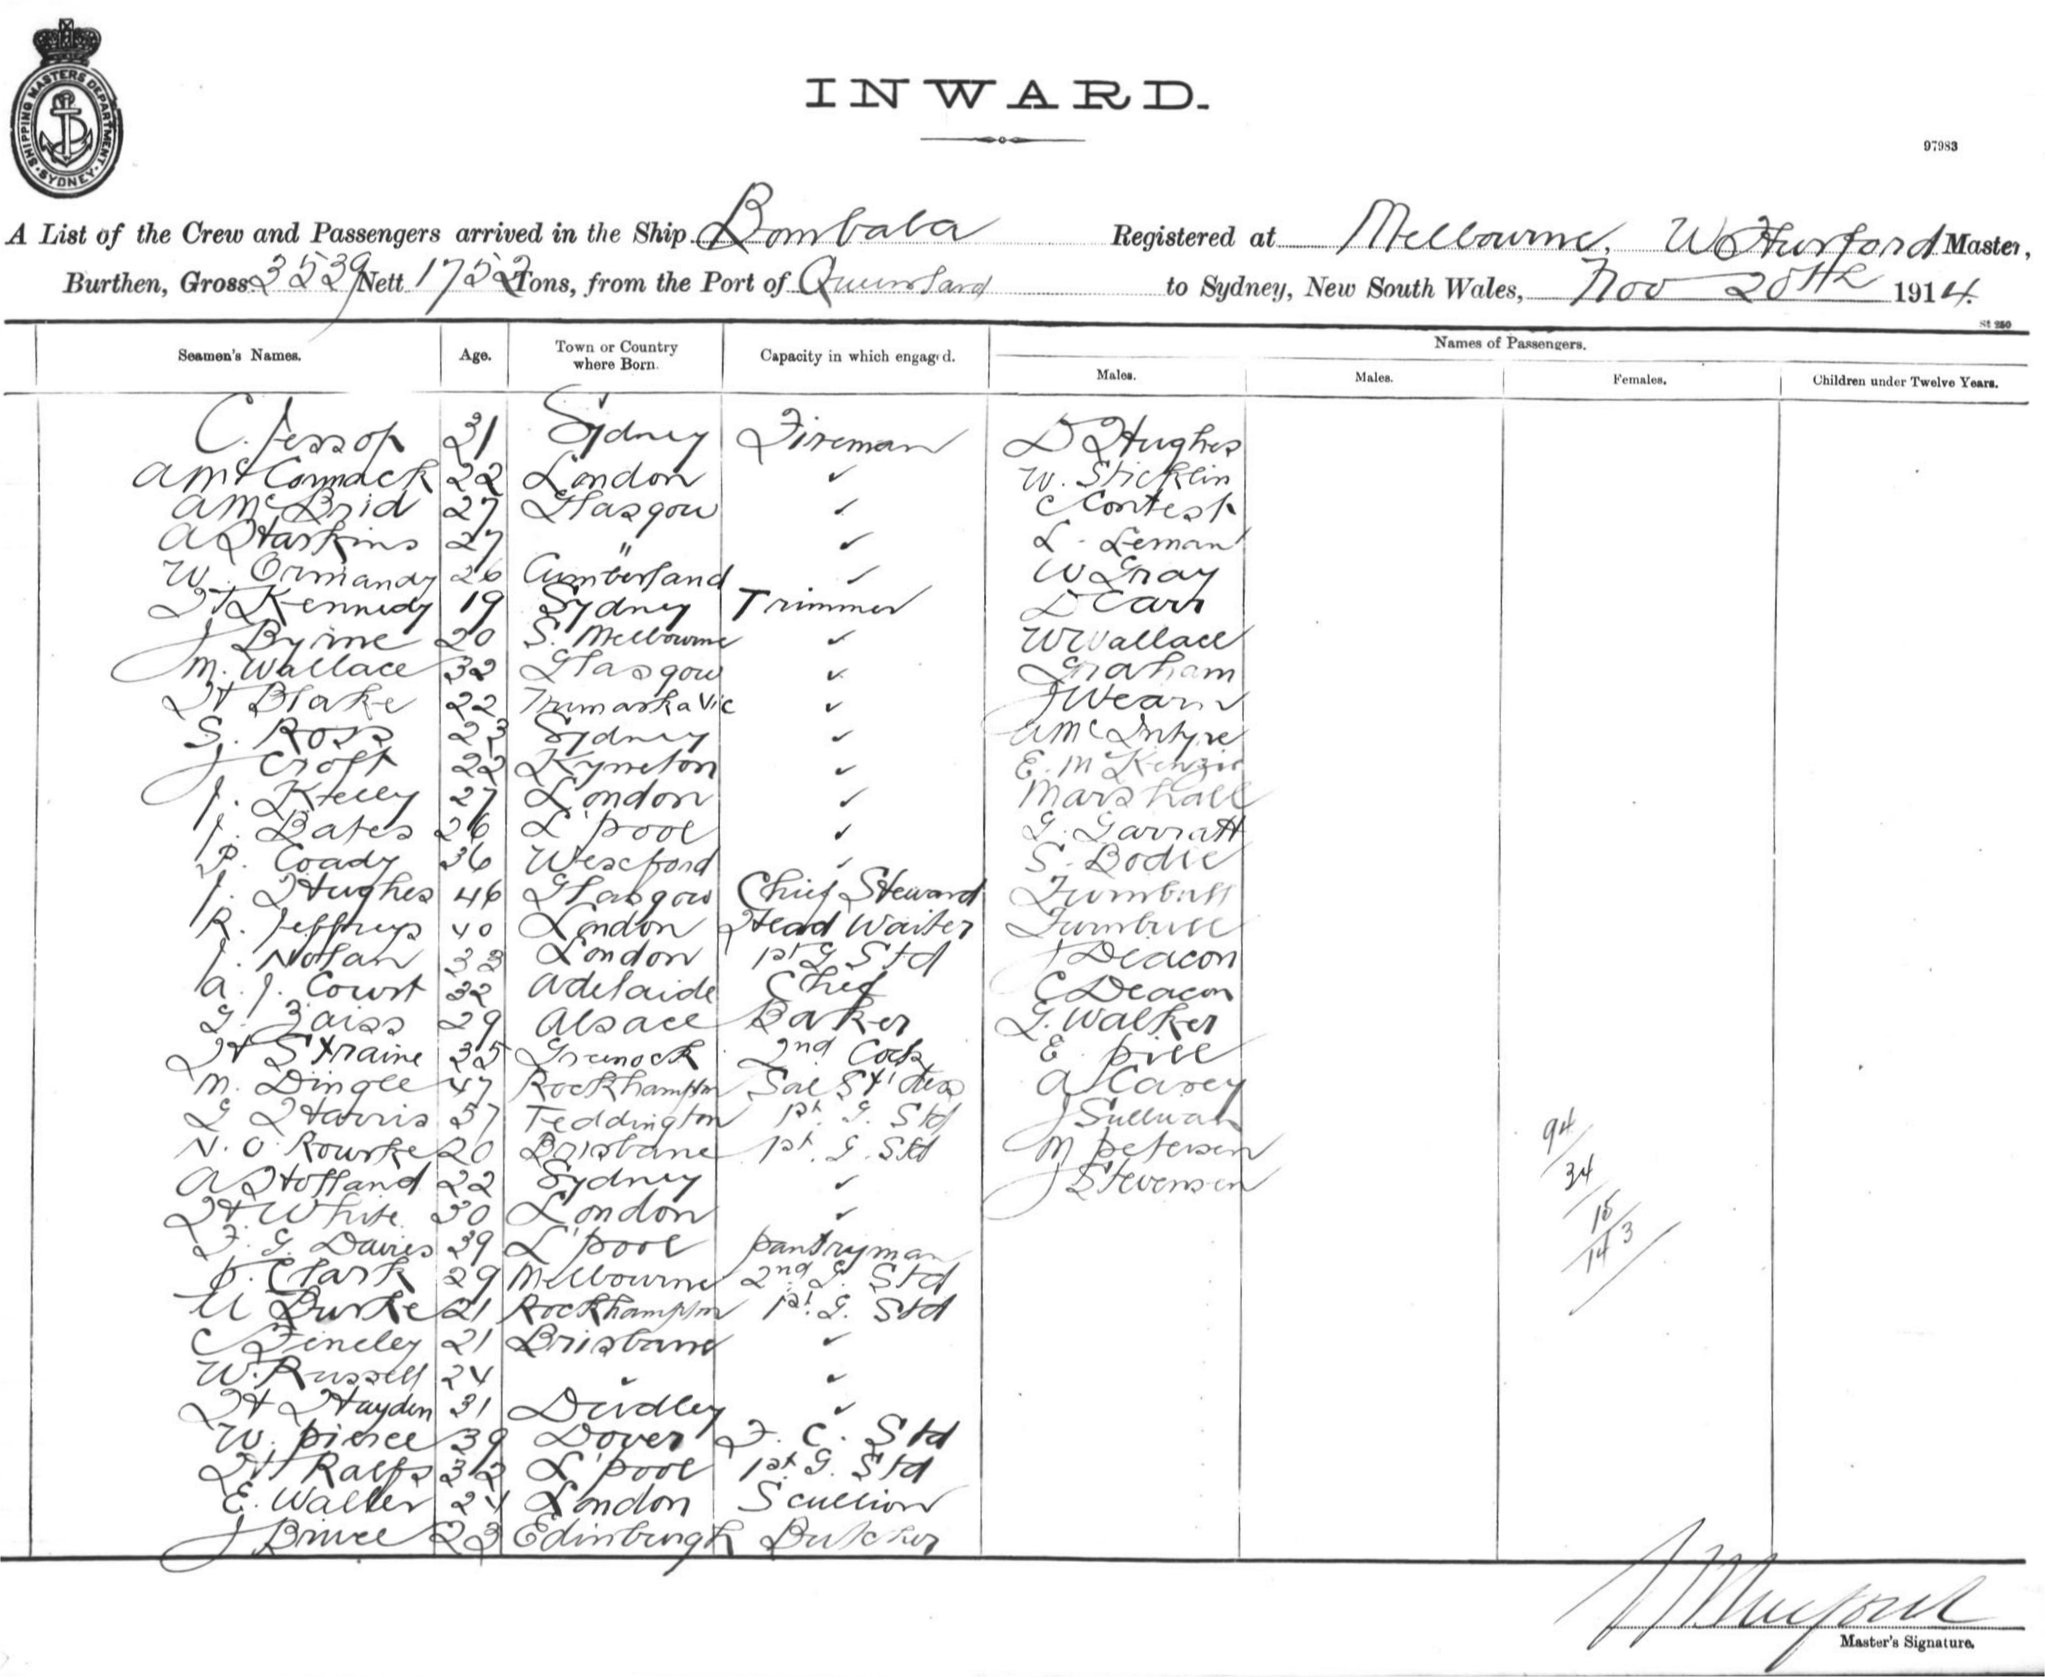 SHIPPING MASTERS DEPARTMENT. SYDNEY.
INWARD.
97983
A List of the Crew and Passengers arrived in the Ship Bombala Registered at Melbourne, W Hurford Master,
Burthen, Gross 3539 Nett 1752 Tons, from the Port of Queensland to Sydney, New South Wales, Nov 20th 1914.
St 250
Seamen's Names. Age. Town or Country where Born. Capacity in which engaged. Names of Passengers.
Males. Males. Females. Children under Twelve Years.
C. Jessop 31 Sydney Fireman D Hughes
A McCormack 22 London ✓ W. Sticklin
A McBrid 27 Glasgow ✓ C Contest
A Haskins 27 " ✓ L. Leman
W. Ormandy 26 Cumberland ✓ W Gray
H Kennedy 19 Sydney Trimmer D Carr
J Byrne 20 S. Melbourne ✓ W Wallace
M. Wallace 32 Glasgow ✓ Graham
H Blake 22 Vic ✓ J Wearn
S. Ross 23 Sydney ✓ A McIntyre
J Croft 22 Kyneton ✓ E. McKenzie
J. Kelly 27 London ✓ Marshall
J. Bates 26 L'pool ✓ G. Garratt
P. Coady 36 Wexford ✓ S. Bodie
J. Hughes 46 Glasgow Chief Steward Turnbull
R. Jeffreys 40 London Head Waiter Turnbull
J. Nolan 33 London 1st G Std J Deacon
A. J. Court 32 Adelaide Chef C Deacon
G. Zaiss 29 Alsace Baker G. Walker
H Straine 35 Greenock 2nd Cook E. Pill
M. Dingle 47 Rockhampton Sal Stdess A Carey
G Harris 37 Teddington 1st. G. Std J Sullivan
N. O'Rourke 20 Brisbane 1st. G. Std M Petersen
A Holland 22 Sydney ✓ J Stevensen
H White 30 London ✓
F. G. Davies 39 L'pool Pantryman
J. Clark 29 Melbourne 2nd. G. Std
U Burke 21 Rockhampton 1st. G. Std
C Fineley 21 Brisbane ✓
W. Russell 24 ✓ ✓
H Hayden 31 Dudley ✓
W. Pierce 39 Dover F. C. Std
H Ralfs 32 L'pool 1st G. Std
E. Walter 24 London Scullion
J Bruce 23 Edinburgh Butcher
94
34
15
143
Master's Signature.